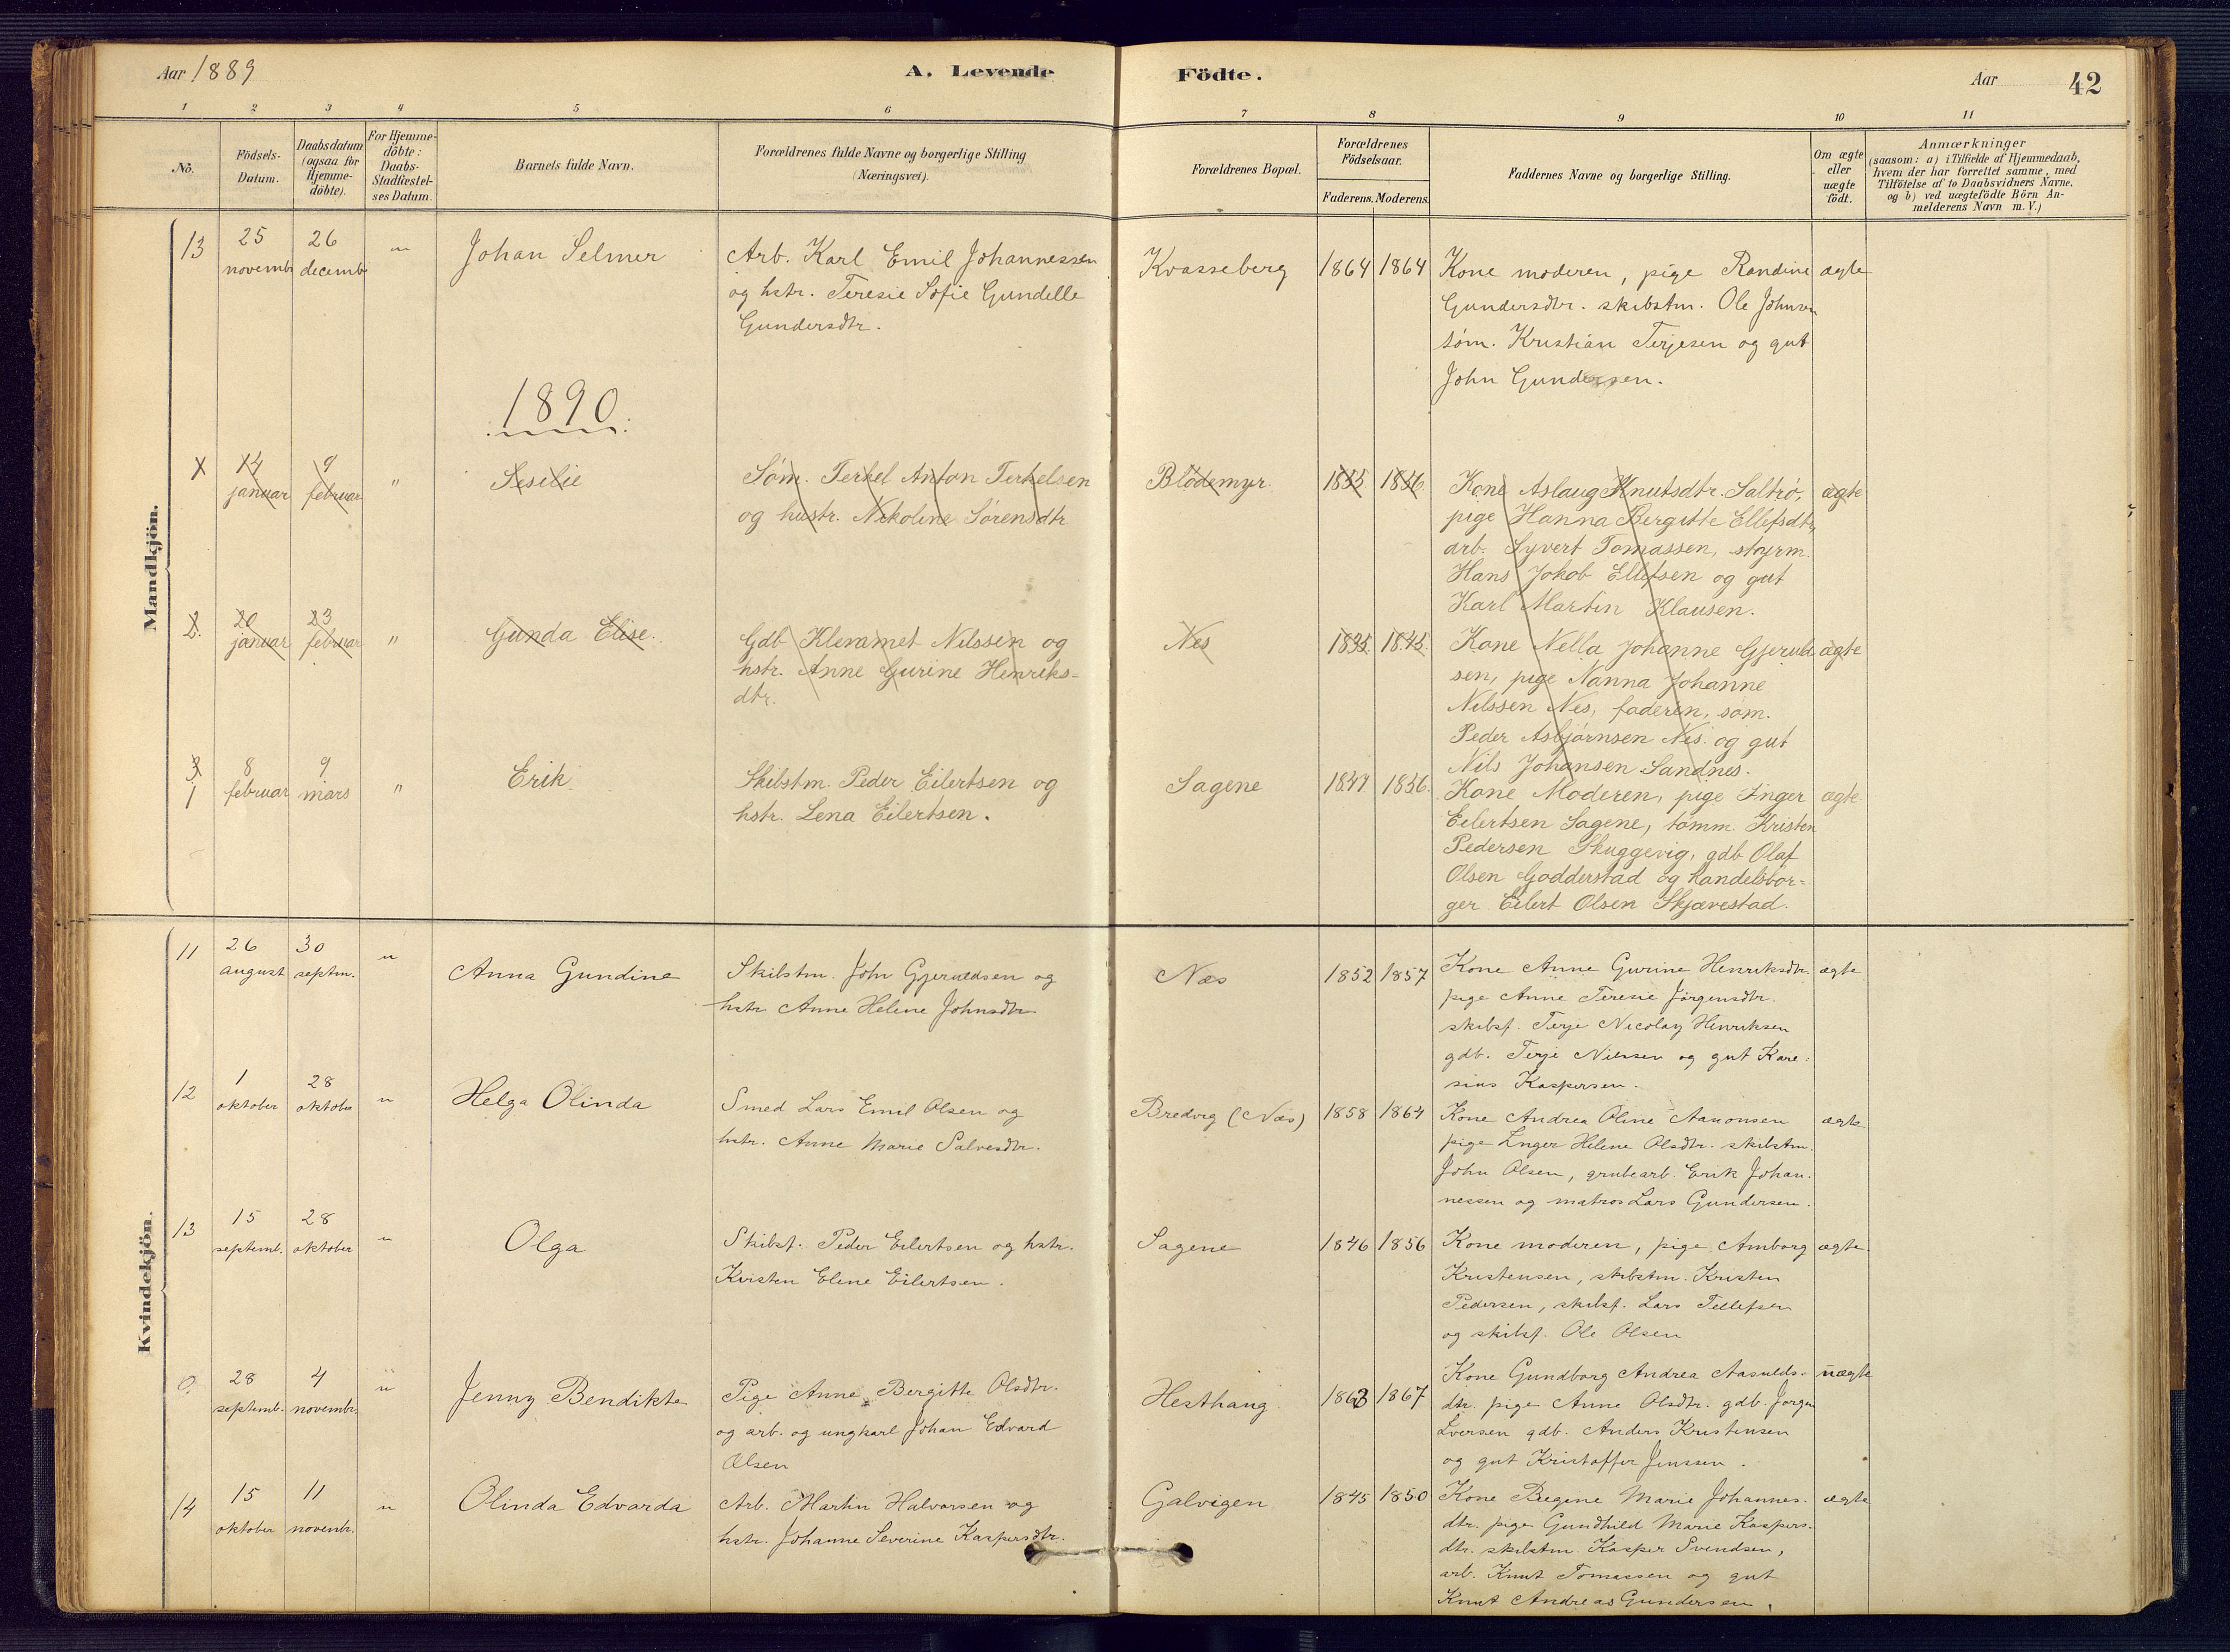 Aar 1889
A. Levende Födte.
Aar
42
1 2 3 4 5 6 7 8 9 10 11
No.
Födsels-
Datum.
Daabsdatum
(ogsaa for
Hjemme-
döbte).
For Hjemme-
döbte:
Daabs-
Stadfæstel-
ses Datum.
Barnets fulde Navn.
Forældrenes fulde Navne og borgerlige Stilling
(Næringsvei).
Forældrenes Bopæl.
Forældrenes
Födselsaar.
Faderens. Moderens.
Faddernes Navne og borgerlige Stilling.
Om ægte
eller
uægte
födt.
Anmærkninger
(saasom: a) i Tilfælde af Hjemmedaab,
hvem der har forrettet samme, med
Tilföielse af to Daabsvidners Navne.
og b) ved uægtefödte Börn An-
melderens Navn m. V.)
Mandkjön.
13
25
novembr
26
decemb
"
Johan Selmer
Arb. Karl Emil Johannessen
og hstr. Teresie Sofie Gundelle
Gundersdtr.
Kvasseberg
1864 1864
Kone moderen, pige Randine
Gundersdtr. skibstm. Ole Johnsen
söm. Kristian Terjesen og gut
John Gundersen.
ægte
1890.
14
januar
9
februar
"
Sesilie
Söm. Terkel Anton Terkelsen
og hustr. Nikoline Sörensdtr
Blödemyr.
1855 1856
Kone Aslaug Knutsdtr. Saltrö,
pige Hanna Bergitte Ellefsdtr,
arb. Syvert Tomassen, styrm.
Hans Jokob Ellefsen og gut
Karl Martin Klausen.
ægte
2.
20
januar
23
februar
"
Gunda Elise.
Gdb Klemmet Nilssen og
hstr. Anne Gurine Henriks-
dtr.
Nes
1835. 1845.
Kone Nella Johanne Gjeruld
sen, pige Nanna Johanne
Nilssen Nes, faderen, söm.
Peder Asbjörnsen Nes. og gut
Nils Johansen Sandnes.
ægte
3
1
8
februar
9
mars
"
Erik
Skibstm. Peder Eilertsen og
hstr. Lena Eilertsen.
Sagene
1847 1856.
Kone Moderen, pige Inger
Eilertsen Sagene, tömm. Kristen
Pedersen Skuggevig, gdb Olaf
Olsen Godderstad og handelsbor-
ger Eilert Olsen Skjævestad.
ægte.
Kvindekjön.
11
26
august
30
septm.
"
Anna Gundine
Skibstm. John Gjeruldsen og
hstr Anne Helene Johnsdtr
Næs
1852 1857
Kone Anne Gurine Henriksdtr.
pige Anne Teresie Jörgensdtr.
skibsf. Terje Nicolay Henriksen
gdb. Terje Nilssen og gut Kare-
sius Kaspersen.
ægte
12
1
oktober
28
oktober
"
Helga Olinda
Smed Lars Emil Olsen og
hstr. Anne Marie Salvesdtr.
Bredvig (Næs)
1858 1864
Kone Andrea Oline Aanonsen
pige Inger Helene Olsdtr. skibstm.
John Olsen, grubearb. Erik Johan-
nessen og matros Lars Gundersen.
ægte
13
15
septemb.
28
oktober
"
Olga
Skibsf. Peder Eilertsen og hstr.
Kristen Elene Eilertsen.
Sagene
1846 1856
Kone moderen, pige Amborg
Kristensen, skibstm. Kristen
Pedersen, skibsf. Lars Tellefsen
og skibsf. Ole Olsen
ægte.
0.
28
septemb.
4
novembr.
"
Jenny Bendikte
Pige Anne Bergitte Olsdtr.
og arb. og ungkarl Johan Edvard
Olsen
Hesthaug
1863 1867
Kone Gundborg Andrea Aasulds-
dtr. pige Anne Olsdtr. gdb. Jörgen
Iversen gdb. Anders Kristensen
og gut Kristoffer Jenssen.
uægte
14
15
oktober
11
novembr.
"
Olinda Edvarda
Arb. Martin Halvorsen og
hstr. Johanne Severine Kaspersdtr.
Galvigen
1845 1850
Kone Birgine Marie Johannes-
dtr. pige Gundhild Marie Kaspers-
dtr. skibstm. Kasper Svendsen,
arb. Knut Tomassen og gut
Knut Andreas Gundersen.
ægte